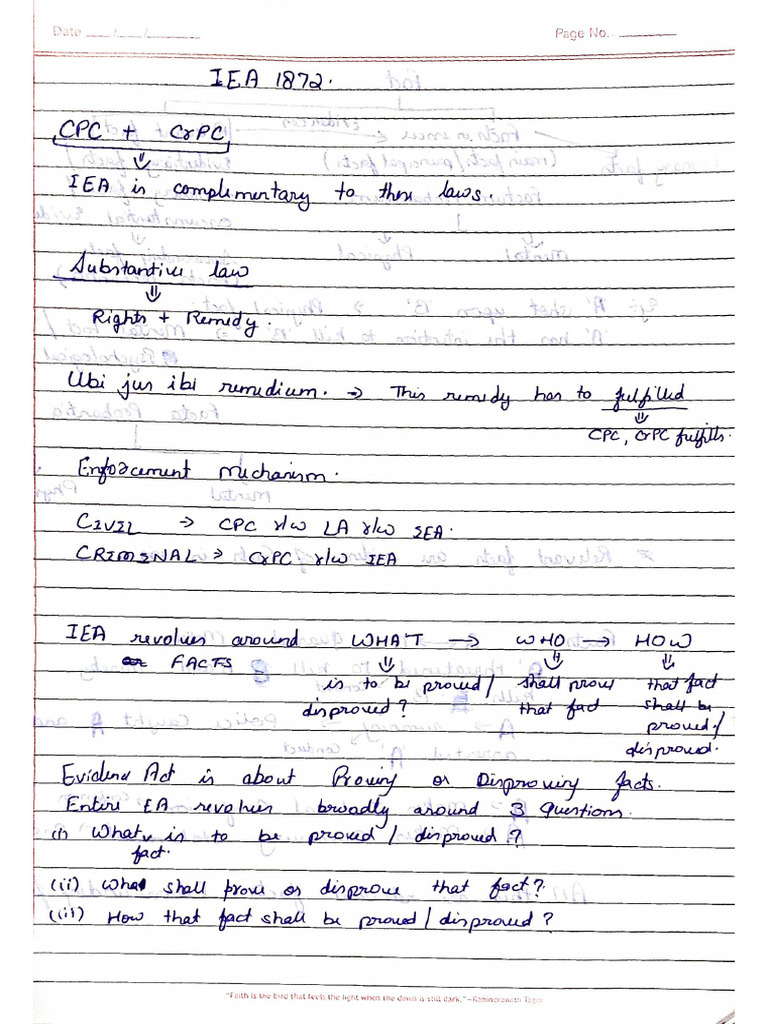 Date ___/___/______
Page No. ________
IEA 1872.
CPC + CrPC
⇓
IEA is complimentary to these laws.
Substantive law
⇓
Rights + Remedy.
Ubi jus ibi remedium. → This remedy has to fulfilled
⇓
CPC, CrPC fulfills.
Enforcement Mechanism.
CIVIL → CPC r/w LA r/w IEA.
CRIMINAL → CrPC r/w IEA
IEA revolves around WHAT → WHO → HOW
or FACTS ⇓ ⇓ ⇓
is to be proved/ shall prove that fact
disproved? that fact shall be
proved/
disproved.
Evidence Act is about Proving or Disproving facts.
Entire EA revolves broadly around 3 Questions.
(i) What is to be proved / disproved?
fact.
(ii) Who shall prove or disprove that fact?
(iii) How that fact shall be proved / disproved?
"Faith is the bird that feels the light when the dawn is still dark." –Rabindranath Tagor